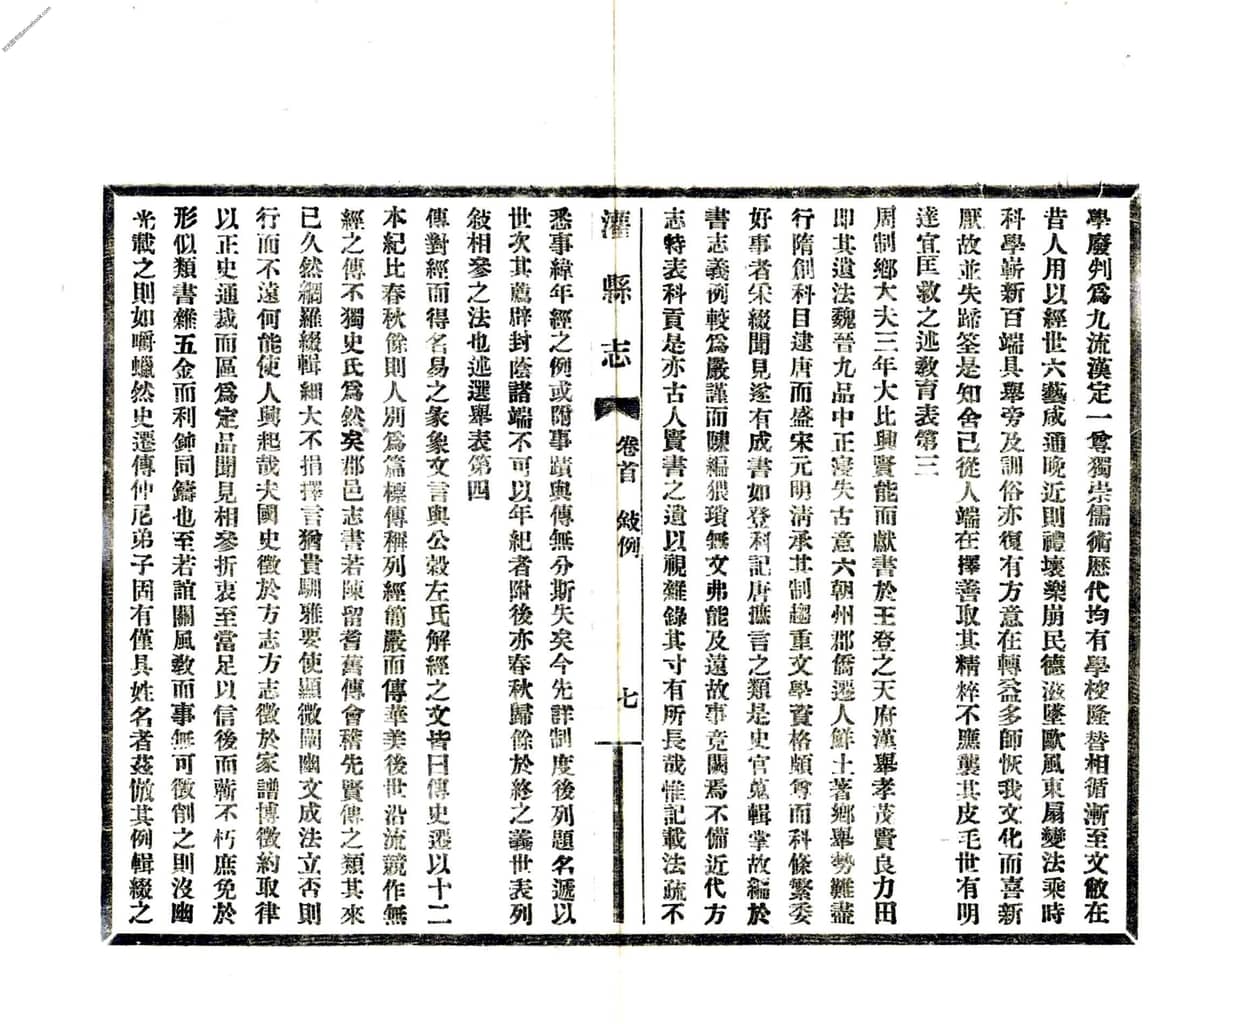 學廢判爲九流漢定一尊獨崇儒術歷代均有學校隆替相循漸至文敝在
昔人用以經世六藝咸通晚近則禮壞樂崩民德滋墜歐風東扇變法乘時
科學嶄新百端具舉旁及訓俗亦復有方意在轉益多師恢我文化而喜新
厭故並失蹄筌是知舍已從人端在擇善取其精粹不應襲其皮毛世有明
達宜匡救之述教育表第三
周制鄉大夫三年大比興賢能而獻書於王登之天府漢舉孝茂賢良力田
即其遺法魏晉九品中正寖失古意六朝州郡僑遷人鮮土著鄉舉勢難盡
行隋創科目逮唐而盛宋元明清承其制趨重文學資格頗尊而科條繁委
好事者采綴聞見遂有成書如登科記唐摭言之類是史官蒐輯掌故編於
書志義例較爲嚴謹而陳編猥瑣無文弗能及遠故事竞闕焉不備近代方
志特表科貢是亦古人賢書之遺以視雜錄其寸有所長哉惟記載法疏不
灌縣志 卷首 敍例 七
悉事緯年經之例或附事蹟與傳無分斯失矣今先詳制度後列題名遞以
世次其薦辟封蔭諸端不可以年紀者附後亦春秋歸餘於終之義世表列
敍相參之法也述選舉表第四
傳對經而得名易之彖象文言與公穀左氏解經之文皆曰傳史遷以十二
本紀比春秋餘則人別爲篇標傳稱列經簡嚴而傳華美後世沿流競作無
經之傳不獨史氏爲然矣郡邑志書若陳留耆舊傳會稽先賢傳之類其來
已久然網羅綴輯細大不捐擇言猶貴馴雅要使顯微闡幽文成法立否則
行而不遠何能使人興起哉夫國史徵於方志方志徵於家譜博徵約取律
以正史通裁而區爲定品聞見相參折衷至當足以信後而蘄不朽庶免於
形似類書雜五金而利鈍同鑄也至若誼關風教而事無可徵削之則沒幽
光載之則如嚼蠟然史遷傳仲尼弟子固有僅具姓名者茲倣其例輯綴之